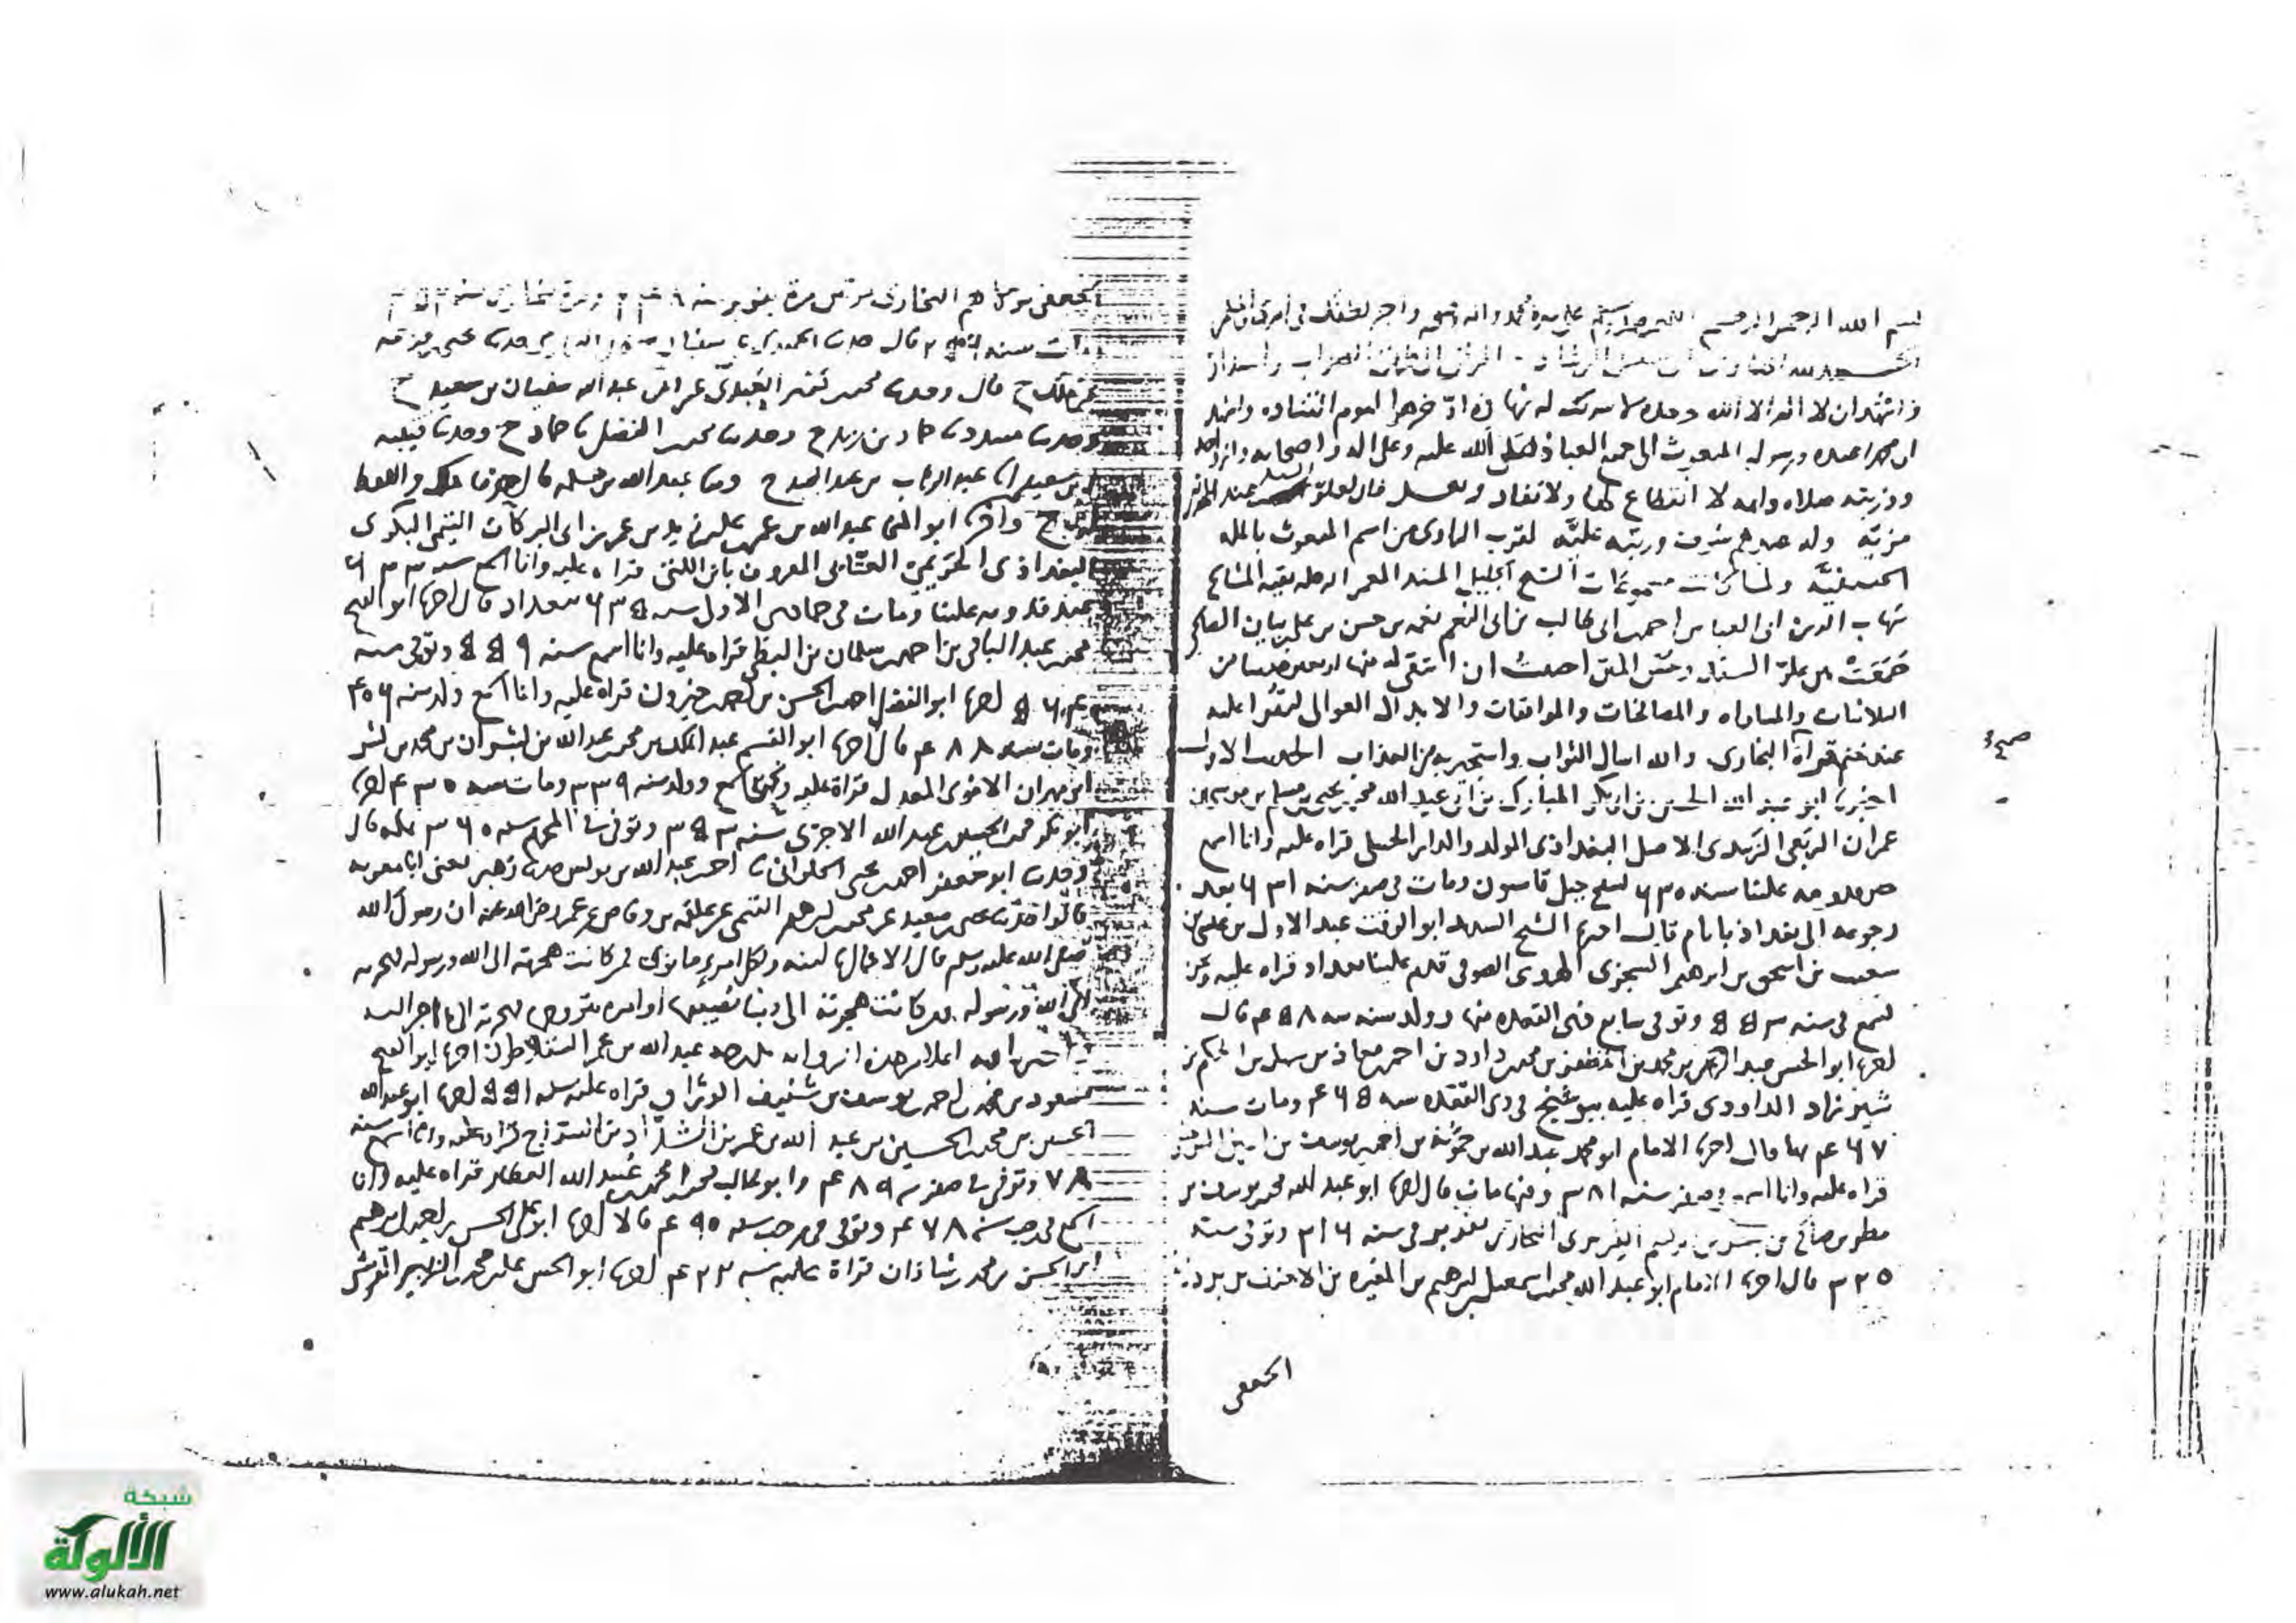 بسم الله الرحمن الرحيم اللهم صل وسلم على سيدنا محمد وآله وصحبه واجر لطفك في
الحمد لله الرشاد
واشهد ان لا اله الا الله وحده لا شريك له شهادة ادخرها ليوم التناده واشهد
ان محمدا عبده ورسوله المبعوث الى جميع العباد صلى الله عليه وعلى اله واصحابه وازواجه
وذريته صلاه دايمه لا انقطاع لها ولا نفاد وبعد فان لعلو السند عند
مزيه ولد شرف ورتبه عليه لقرب من اسم المبعوث بالمله
الحنيفيه ولما كانت مسموعات الشيخ الجليل المسند المعمر الرحله بقيه المشايخ
شهاب الدين ابى العباس احمد بن ابى طالب بن ابى النعم نعمه بن حسن بن على بن بيان الصالحي
جمعت بين علو السند وحسن المتن احببت ان انتقى له منها اربعين حديثا من
الثلاثيات والمساواه والمصافحات والموافقات والابدال العوالى ليقرا عليه
عند ختم قراة البخارى والله اسال الثواب واستجير به من العذاب الحديث الاول
صح
اخبرنا ابو عبد الله الحسين بن ابى بكر المبارك بن ابى عبد الله محمد بن يحيى بن مسلم بن موسى بن
عمران الربعى الزبيدى الاصل البغداذى المولد والدار الحنبلى قراه عليه وانا اسمع
حين قدومه علينا سنه ٦٣٠ بسفح جبل قاسيون ومات فى صفر سنه ٦٣١ بعد
رجوعه الى بغداذ بايام قال اخبرنا الشيخ السديد ابو الوقت عبد الاول بن عيسى بن
شعيب بن اسحق بن ابرهيم السجزى الهروى الصوفى قدم علينا بغداد قراه عليه ونحن
نسمع فى سنه ٥٥٣ وتوفى سابع ذى القعده منها وولد سنه ٤٥٨ قال
اخبرنا ابو الحسن عبد الرحمن بن محمد بن المظفر بن محمد بن داود بن احمد بن معاذ بن سهل بن الحكم بن
شيرزاد الداوودى قراه عليه ببوشنج فى ذى القعده سنه ٤٦٥ ومات سنه
٤٦٧ بها قال اخبرنا الامام ابو محمد عبد الله بن حمويه بن احمد بن يوسف بن اعين السرخسى
قراه عليه وانا اسمع فى صفر سنه ٣٨١ وفيها مات قال اخبرنا ابو عبد الله محمد بن يوسف بن
مطر بن صالح بن بشر بن ابرهيم الفربرى البخارى بفربر فى سنه ٣١٦ وتوفى سنه
٣٢٠ قال اخبرنا الامام ابو عبد الله محمد بن اسمعيل بن ابرهيم بن المغيره بن الاحنف بن بردزبه
الجعفى
الجعفى مولاهم البخارى مرتين مرة بفربر سنه ومرة ببخارى سنه
ومات سنه ٢٥٦ قال حدثنا الحميدى ثنا سفيان وحدثنا يحيى بن قزعه
عن ملك ح قال وحدثنا محمد بن كثير العبدى عن ابى عبد الله سفيان بن سعيد ح
وحدثنا مسدد ثنا حماد بن زيد ح وحدثنا محمد بن الفضل ثنا حماد ح وحدثنا قتيبه
بن سعيد ثنا عبد الوهاب بن عبد المجيد ح وثنا عبد الله بن مسلمه قال اخبرنا ملك واللفظ
له ح واخبرنا ابو المنجى عبد الله بن عمر بن على بن زيد بن عمر بن ابى البركات التيمى البكرى
البغداذى الحريمى العتابى المعروف بابن اللتى قراه عليه وانا اسمع سنه ٦٣٣
عند قدومه علينا ومات فى جمادى الاول سنه ٦٣٥ ببغداد قال اخبرنا ابو الفتح
محمد بن عبد الباقى بن احمد بن سلمان بن البطى قراه عليه وانا اسمع سنه ٥٥٩ وتوفى سنه
٥٦٤ اخبرنا ابو الفضل احمد بن الحسن بن احمد بن خيرون قراه عليه وانا اسمع ولد سنه ٤٠٦
ومات سنه ٤٨٨ قال اخبرنا ابو القسم عبد الملك بن محمد بن عبد الله بن بشران بن محمد بن بشر
ابن مهران الاموى المعدل قراة عليه ونحن نسمع وولد سنه ٣٣٩ ومات سنه ٤٣٠ اخبرنا
ابو بكر محمد بن الحسين بن عبد الله الاجرى سنه ٣٥٣ وتوفى فى المحرم سنه ٣٦٠ بمكه قال
وحدثنا ابو جعفر احمد بن يحيى الحلوانى ثنا احمد بن عبد الله بن يونس حدثنا زهير يعنى ابن معويه
قالوا حدثنا يحيى بن سعيد عن محمد بن ابرهيم التيمى عن علقمه بن وقاص عن عمر رضى الله عنه ان رسول الله
صلى الله عليه وسلم قال الاعمال بالنيه ولكل امرىء ما نوى فمن كانت هجرته الى الله ورسوله فهجرته
الى الله ورسوله ومن كانت هجرته الى دنيا يصيبها او امراه يتزوجها فهجرته الى ما هاجر اليه
اعلا من هذه الرواية عبد الله بن عمر اخبرنا ابو الفتح
مسعود بن محمد بن احمد بن يوسف بن شنيف الوراق قراه عليه سنه ٥٥١ اخبرنا ابو عبد الله
الحسين بن محمد بن الحسين بن عبد الله بن عمر بن السراج قراه عليه وانا اسمع سنه
وتوفى فى صفر سنه ٤٨٩ وابو غالب محمد بن محمد بن عبيد الله العطار قراه عليه وانا
اسمع فى رجب سنه ٤٧٨ وتوفى فى رجب سنه ٤٩٥ قالا اخبرنا ابو على الحسن بن احمد بن ابرهيم
ابن الحسن بن محمد بن شاذان قراة عليه سنه ٤٢٣ اخبرنا ابو الحسن على بن محمد بن الزبير القرشى
شبكة
الألوكة
www.alukah.net